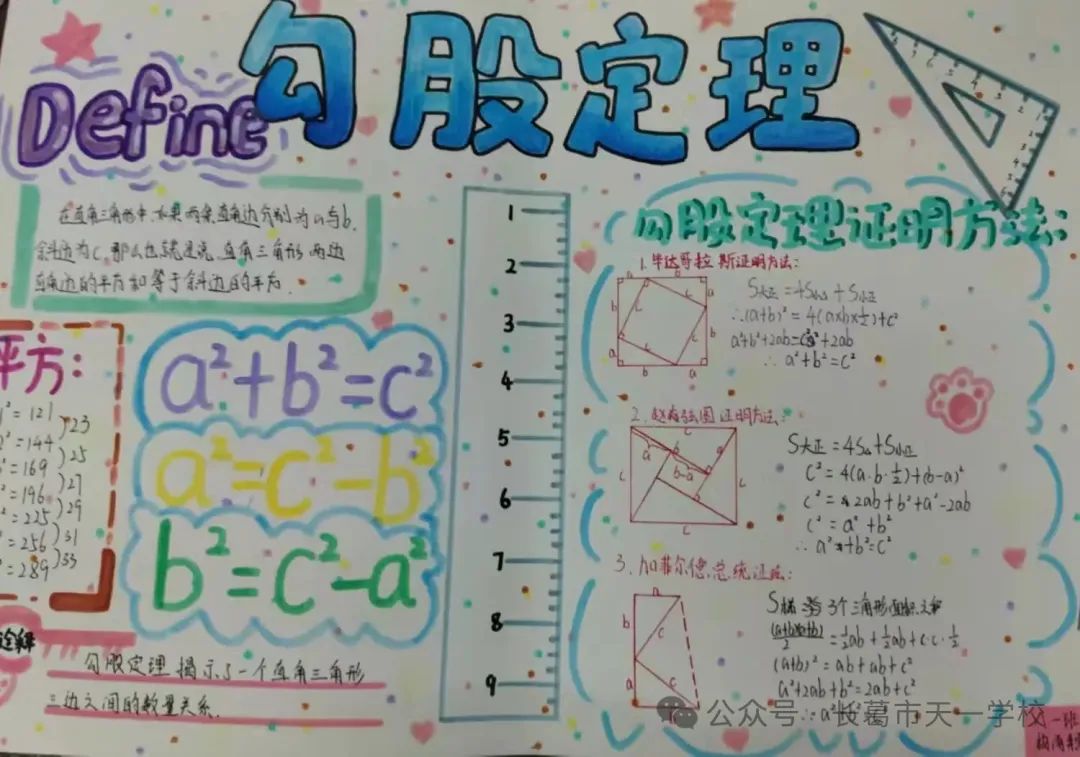 勾股定理
Define
在直角三角形中,如果两条直角边分别为a与b,
斜边为c,那么也就是说,直角三角形两边
直角边的平方和等于斜边的平方.
平方:
²=121
²=144
²=169
²=196
²=225
²=256
²=289
)23
)25
)27
)29
)31
)33
a²+b²=c²
a²=c²-b²
b²=c²-a²
诠释
勾股定理揭示了一个直角三角形
三边之间的数量关系.
1
2
3
4
5
6
7
8
9
勾股定理证明方法:
1.毕达哥拉斯证明方法:
S大正=4S小+S小正
∴(a+b)²=4(a×b×½)+c²
a²+b²+2ab=c²+2ab
∴a²+b²=c²
2.赵爽弦图证明方法:
b-a
S大正=4S△+S小正
c²=4(a·b·½)+(b-a)²
c²=2ab+b²+a²-2ab
c²=a²+b²
∴a²+b²=c²
3.加菲尔德总统证法:
S梯 3个三角形面积之和
=½ab+½ab+c·c·½
(a+b)²=ab+ab+c²
a²+2ab+b²=2ab+c²
∴a²
公众号·长葛市天一学校
一班